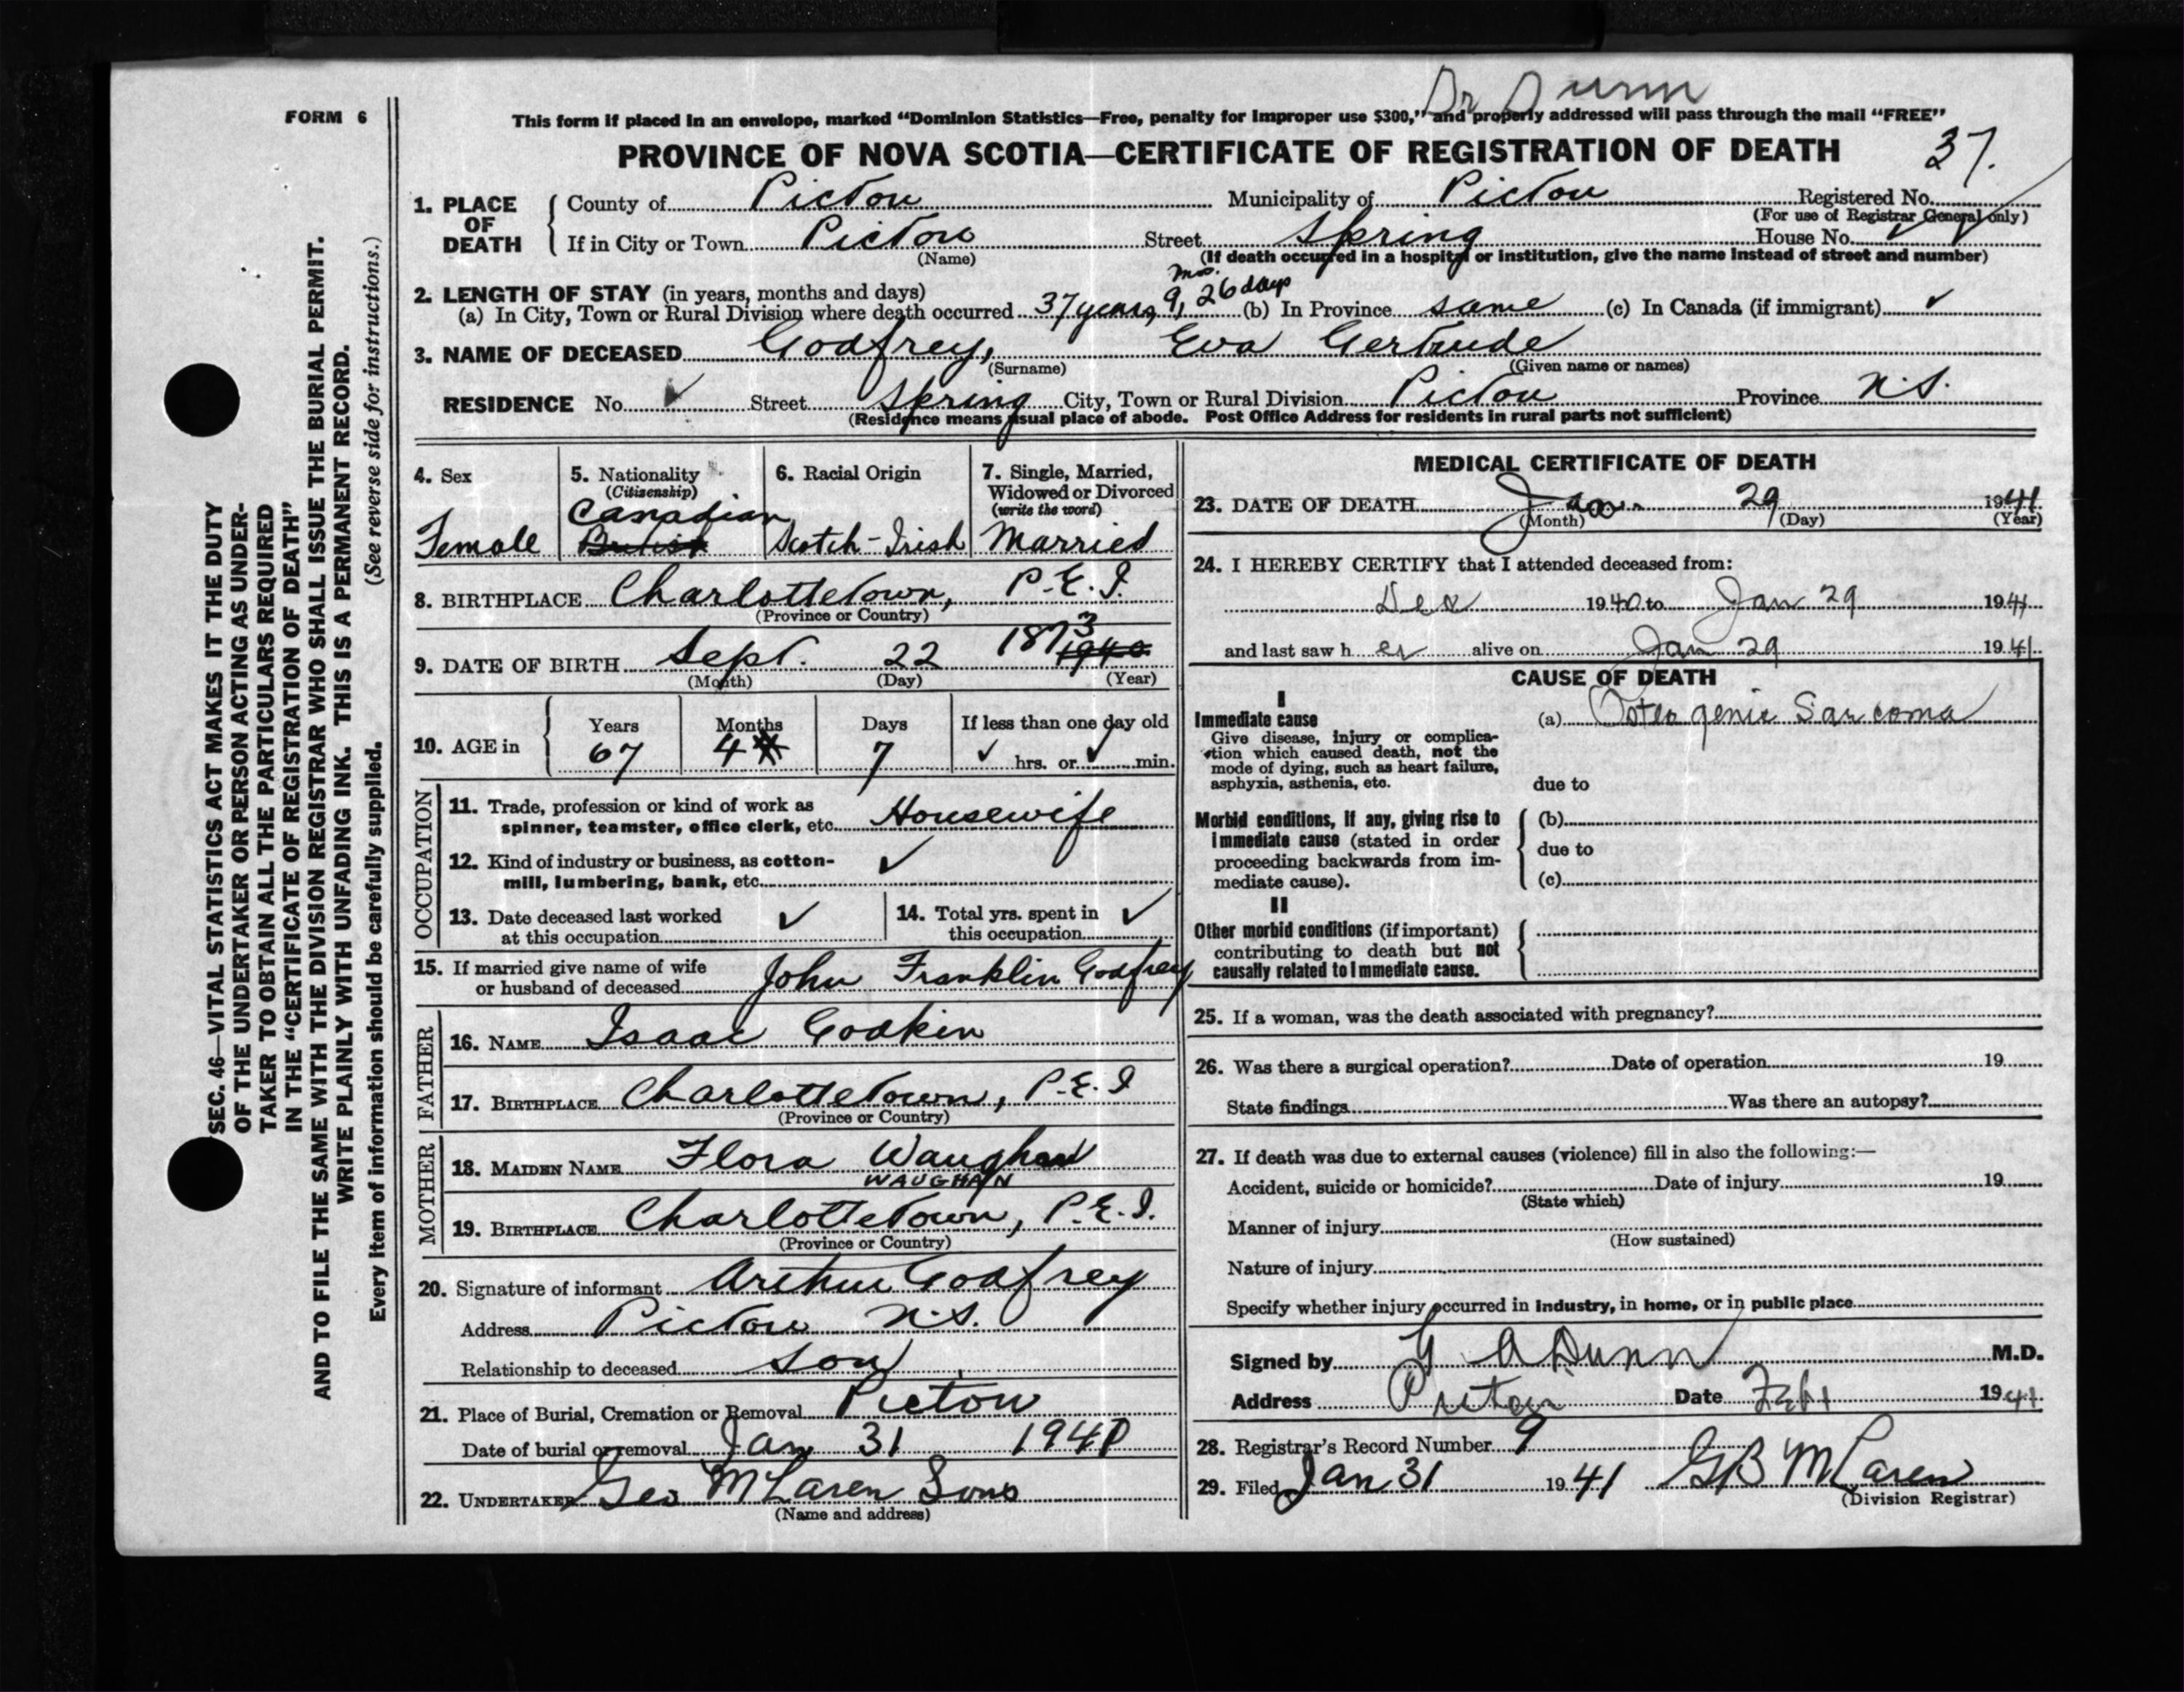 Dr Dunn
FORM 6
This form if placed in an envelope, marked "Dominion Statistics—Free, penalty for improper use $300," and properly addressed will pass through the mail "FREE"
PROVINCE OF NOVA SCOTIA—CERTIFICATE OF REGISTRATION OF DEATH
37.
1. PLACE OF DEATH
County of Pictou Municipality of Pictou Registered No.
(For use of Registrar General only)
If in City or Town Pictou Street Spring House No.
(Name)
(If death occurred in a hospital or institution, give the name instead of street and number)
2. LENGTH OF STAY (in years, months and days)
(a) In City, Town or Rural Division where death occurred 37 years, 9 mos. 26 days (b) In Province same (c) In Canada (if immigrant) ✓
3. NAME OF DECEASED Godfrey, Eva Gertrude
(Surname) (Given name or names)
RESIDENCE No. ✓ Street Spring City, Town or Rural Division Pictou Province N.S.
(Residence means usual place of abode. Post Office Address for residents in rural parts not sufficient)
SEC. 46—VITAL STATISTICS ACT MAKES IT THE DUTY
OF THE UNDERTAKER OR PERSON ACTING AS UNDER-
TAKER TO OBTAIN ALL THE PARTICULARS REQUIRED
IN THE "CERTIFICATE OF REGISTRATION OF DEATH"
AND TO FILE THE SAME WITH THE DIVISION REGISTRAR WHO SHALL ISSUE THE BURIAL PERMIT.
WRITE PLAINLY WITH UNFADING INK. THIS IS A PERMANENT RECORD.
Every item of information should be carefully supplied. (See reverse side for instructions.)
4. Sex
Female
5. Nationality
(Citizenship)
Canadian
British
6. Racial Origin
Scotch-Irish
7. Single, Married,
Widowed or Divorced
(write the word)
Married
8. BIRTHPLACE Charlottetown, P.E.I.
(Province or Country)
9. DATE OF BIRTH Sept. 22 1873 1940
(Month) (Day) (Year)
10. AGE in
Years Months Days If less than one day old
67 4 7 ✓ hrs. or ✓ min.
OCCUPATION
11. Trade, profession or kind of work as
spinner, teamster, office clerk, etc. Housewife
12. Kind of industry or business, as cotton-
mill, lumbering, bank, etc. ✓
13. Date deceased last worked
at this occupation ✓
14. Total yrs. spent in
this occupation ✓
15. If married give name of wife
or husband of deceased John Franklin Godfrey
FATHER
16. NAME Isaac Godkin
17. BIRTHPLACE Charlottetown, P.E.I
(Province or Country)
MOTHER
18. MAIDEN NAME Flora Waughan
WAUGHAN
19. BIRTHPLACE Charlottetown, P.E.I.
(Province or Country)
20. Signature of informant Arthur Godfrey
Address Pictou N.S.
Relationship to deceased son
21. Place of Burial, Cremation or Removal Pictou
Date of burial or removal Jan 31 1941
22. UNDERTAKER Geo McLaren Sons
(Name and address)
MEDICAL CERTIFICATE OF DEATH
23. DATE OF DEATH Jan. 29 1941
(Month) (Day) (Year)
24. I HEREBY CERTIFY that I attended deceased from:
Dec 1940 to Jan 29 1941
and last saw her alive on Jan 29 1941.
CAUSE OF DEATH
I
Immediate cause
Give disease, injury or complica-
tion which caused death, not the
mode of dying, such as heart failure,
asphyxia, asthenia, etc.
(a) Osteo genic Sarcoma
due to
Morbid conditions, if any, giving rise to
immediate cause (stated in order
proceeding backwards from im-
mediate cause).
(b)
due to
(c)
II
Other morbid conditions (if important)
contributing to death but not
causally related to immediate cause.
25. If a woman, was the death associated with pregnancy?
26. Was there a surgical operation? Date of operation 19
State findings Was there an autopsy?
27. If death was due to external causes (violence) fill in also the following:—
Accident, suicide or homicide? Date of injury 19
(State which)
Manner of injury
(How sustained)
Nature of injury
Specify whether injury occurred in industry, in home, or in public place
Signed by G A Dunn M.D.
Address Pictou Date Feb 1 1941
28. Registrar's Record Number 9
29. Filed Jan 31 1941 GB McLaren
(Division Registrar)